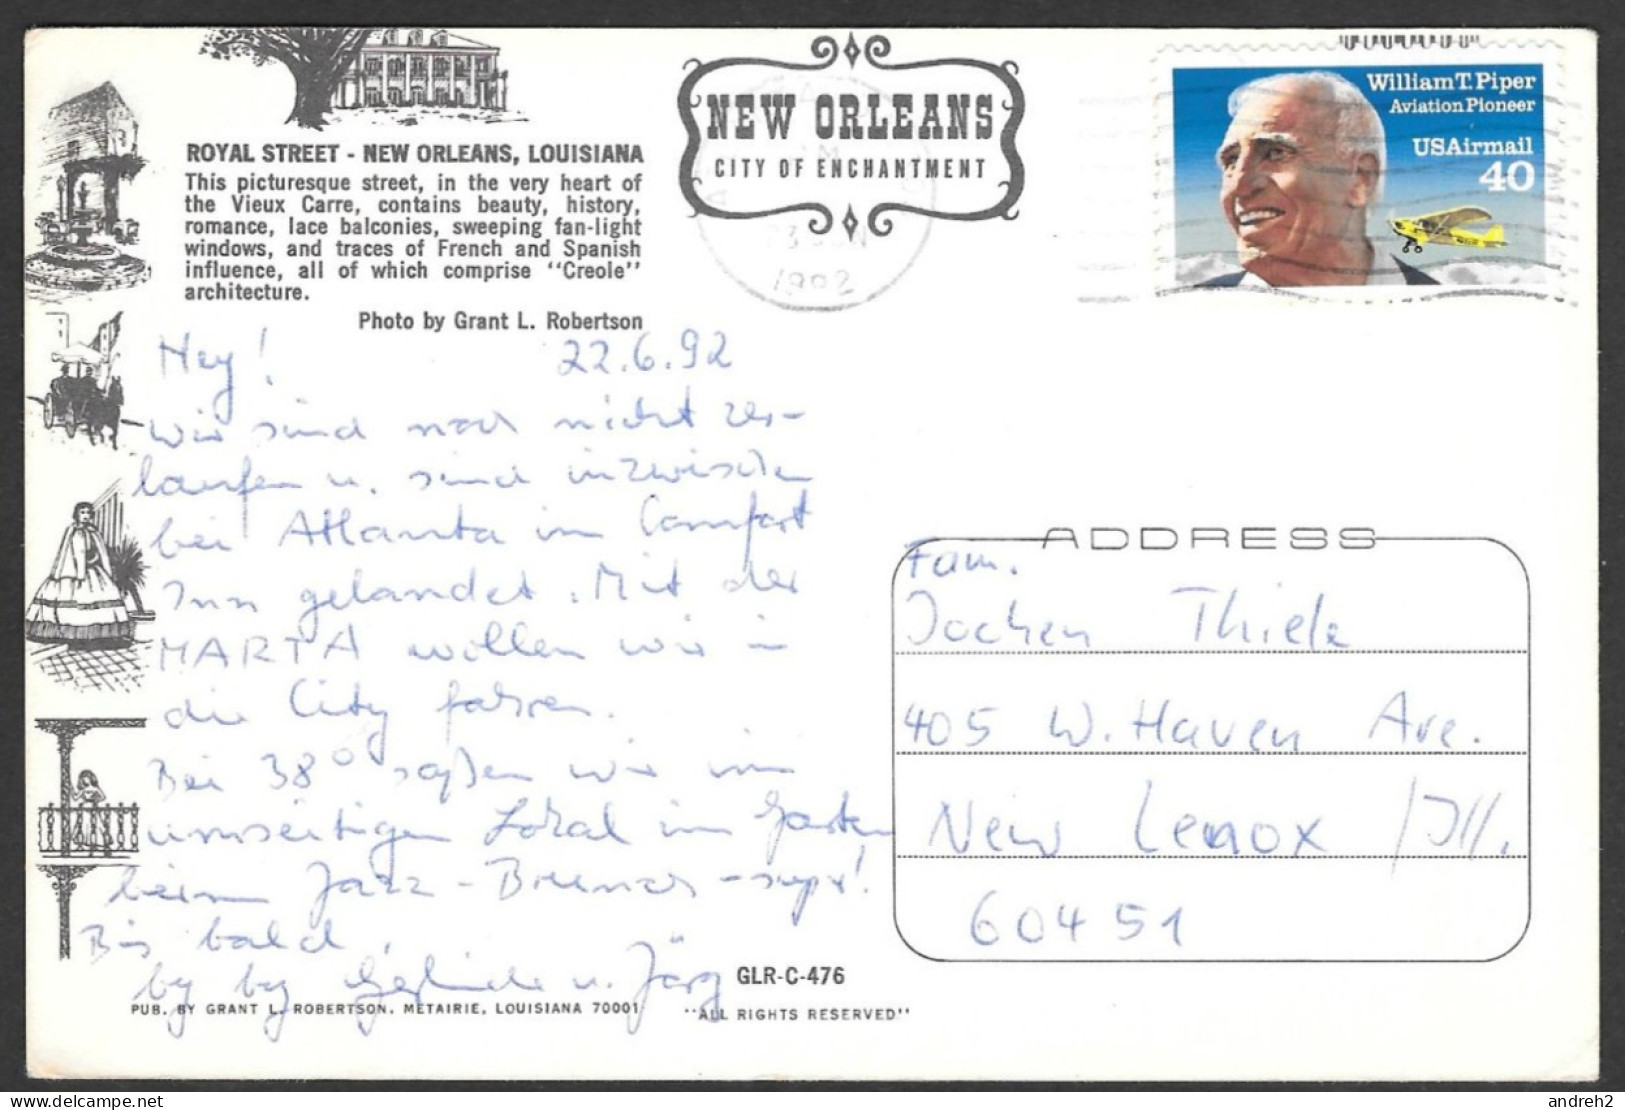 ROYAL STREET - NEW ORLEANS, LOUISIANA
This picturesque street, in the very heart of
the Vieux Carre, contains beauty, history,
romance, lace balconies, sweeping fan-light
windows, and traces of French and Spanish
influence, all of which comprise "Creole"
architecture.
Photo by Grant L. Robertson
NEW ORLEANS
CITY OF ENCHANTMENT
1992
William T. Piper
Aviation Pioneer
USAirmail
40
Hey! 22.6.92
Wir sind noch nicht zer-
laufen u. sind inzwischen
bei Atlanta im Comfort
Inn gelandet. Mit der
MARTA wollen wir in
die City fahren.
Bei 38° saßen wir im
urigen Lokal im Garten
beim Jazz-Brunch - super!
Bis bald,
by by Gerlinde u. Jörg
ADDRESS
Fam.
Jochen Thiele
405 W. Haven Ave.
New Lenox / Ill.
60451
GLR-C-476
PUB. BY GRANT L. ROBERTSON, METAIRIE, LOUISIANA 70001
"ALL RIGHTS RESERVED"
delcampe.net
andreh2